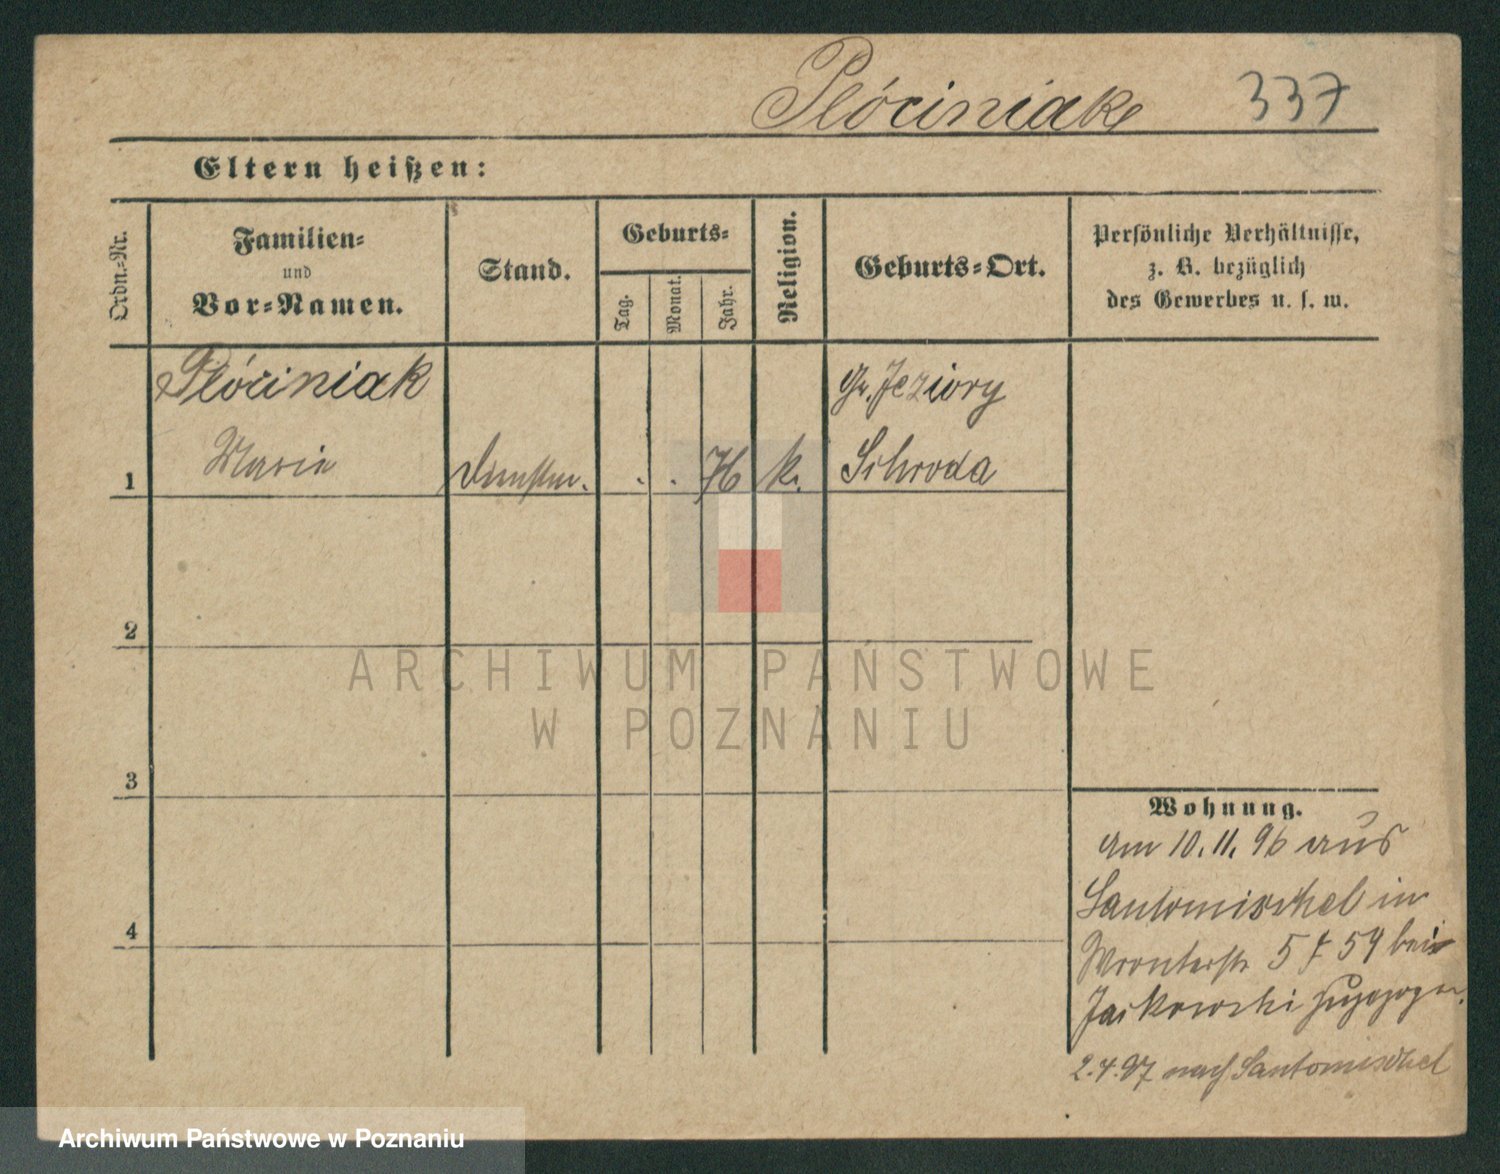 Plóciniak 337
Eltern heißen:
Ordn.-Nr.
Familien-
und
Vor-Namen.
Stand.
Geburts-
Tag.
Monat.
Jahr.
Religion.
Geburts-Ort.
Persönliche Verhältnisse,
z. B. bezüglich
des Gewerbes u. s. w.
Plóciniak
Gr. Jeziory
1 Marie . . 76 k. Schroda
2
3
4
Wohnung.
am 10. 11. 96 aus
Santomischel in
Wronkerstr 5 bei
Jaskowski
2.4.97 nach Santomischel
ARCHIWUM PAŃSTWOWE
W POZNANIU
Archiwum Państwowe w Poznaniu